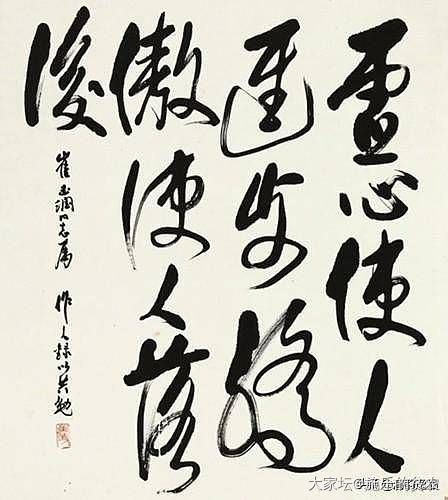 虚心使人
進步驕
傲使人落
後
崔玉潤同志属 作人録以共勉
大家坛